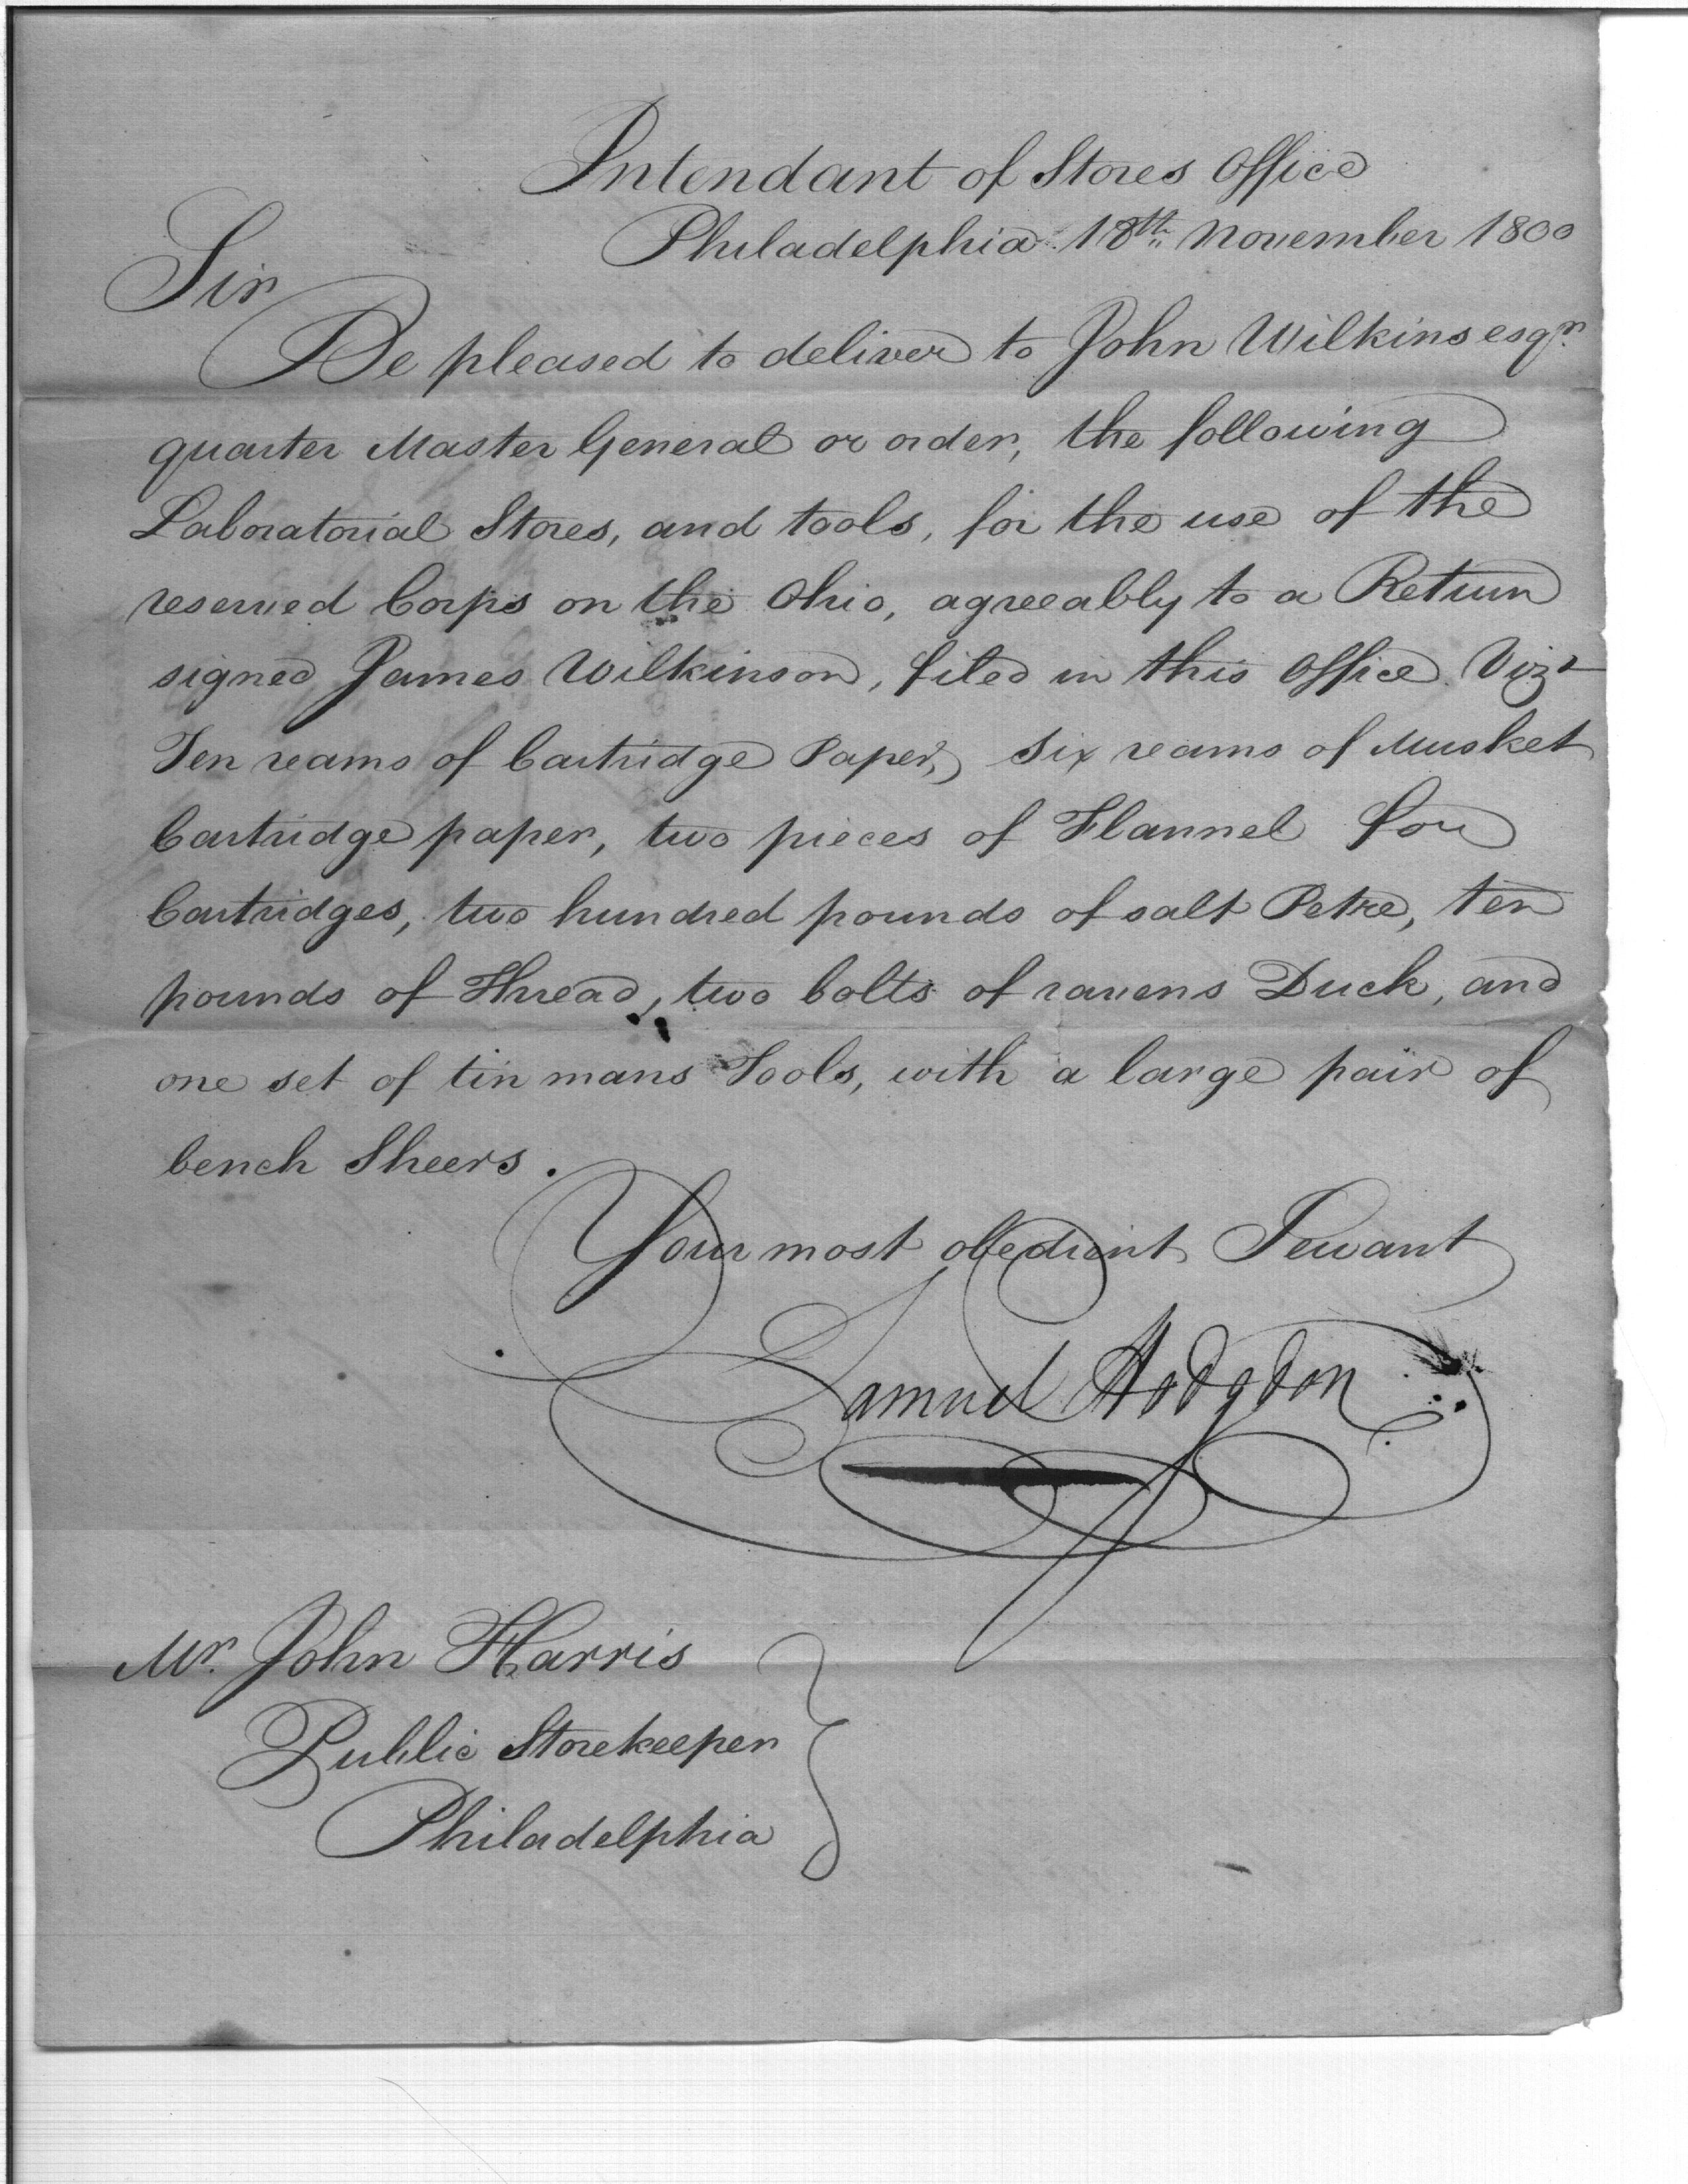 Intendant of Stores Office
Philadelphia 18th November 1800
Sir
Be pleased to deliver to John Wilkins esqr.
quarter Master General or order, the following
Laboratorial Stores, and tools, for the use of the
reserved Corps on the Ohio, agreeably to a Return
signed James Wilkinson, filed in this Office. Vizt
Ten reams of Cartridge Paper, six reams of Musket
Cartridge paper, two pieces of Flannel for
Cartridges, two hundred pounds of salt Petre, ten
pounds of Thread, two bolts of ravens Duck, and
one set of tin mans Tools, with a large pair of
bench Sheers.
Your most obedient Servant
Samuel Hodgdon
Mr. John Harris
Public Storekeeper
Philadelphia